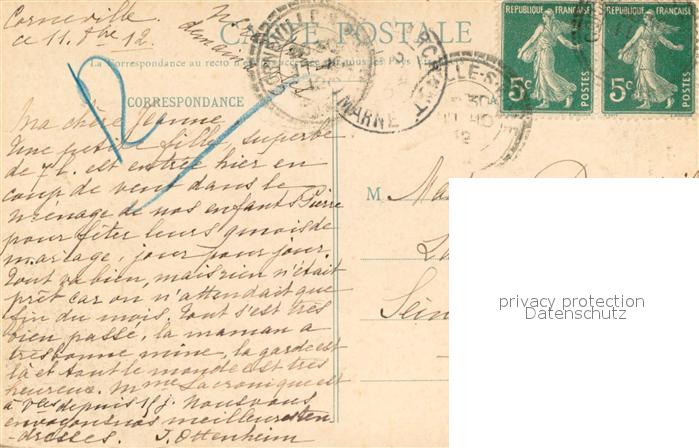 Corneville
ce 11. 8bre 12.
CARTE POSTALE
La Correspondance au recto n'est pas acceptée par tous les Pays
CORRESPONDANCE
Ma chère Jeanne
Une petite fille, superbe
de 7 L. est entrée hier en
coup de vent dans le
ménage de nos enfants Pierre
pour fêter leurs 9 mois de
mariage, jour pour jour.
Tout va bien, mais rien n'était
prêt car on n'attendait que
fin du mois. Tout s'est très
bien passé, la maman a
très bonne mine, la garde est
là et tout le monde est très
heureux. Mme Lacronique est
à depuis 15 j. Nous vous
envoyons nos meilleures ten
dresses. J. Ottenheim
MARNE
M
REPUBLIQUE FRANÇAISE
5c
POSTES
REPUBLIQUE FRANÇAISE
5c
POSTES
privacy protection
Datenschutz